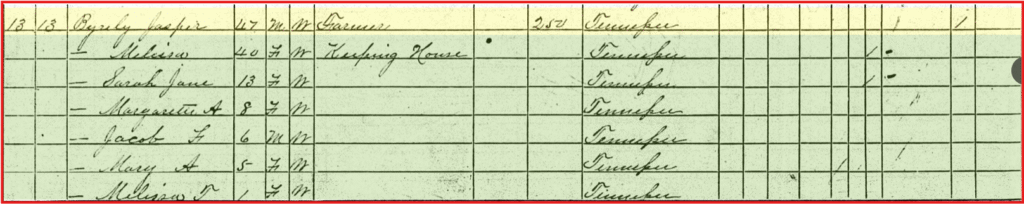 13 13 Byrely Jasper 47 M W Farmer 250 Tennessee 1
— Melissa 40 F W Keeping House Tennessee 1
— Sarah Jane 13 F W Tennessee 1
— Margarette A 8 F W Tennessee
— Jacob F 6 M W Tennessee
— Mary A 5 F W Tennessee
— Melissa T 1 F W Tennessee